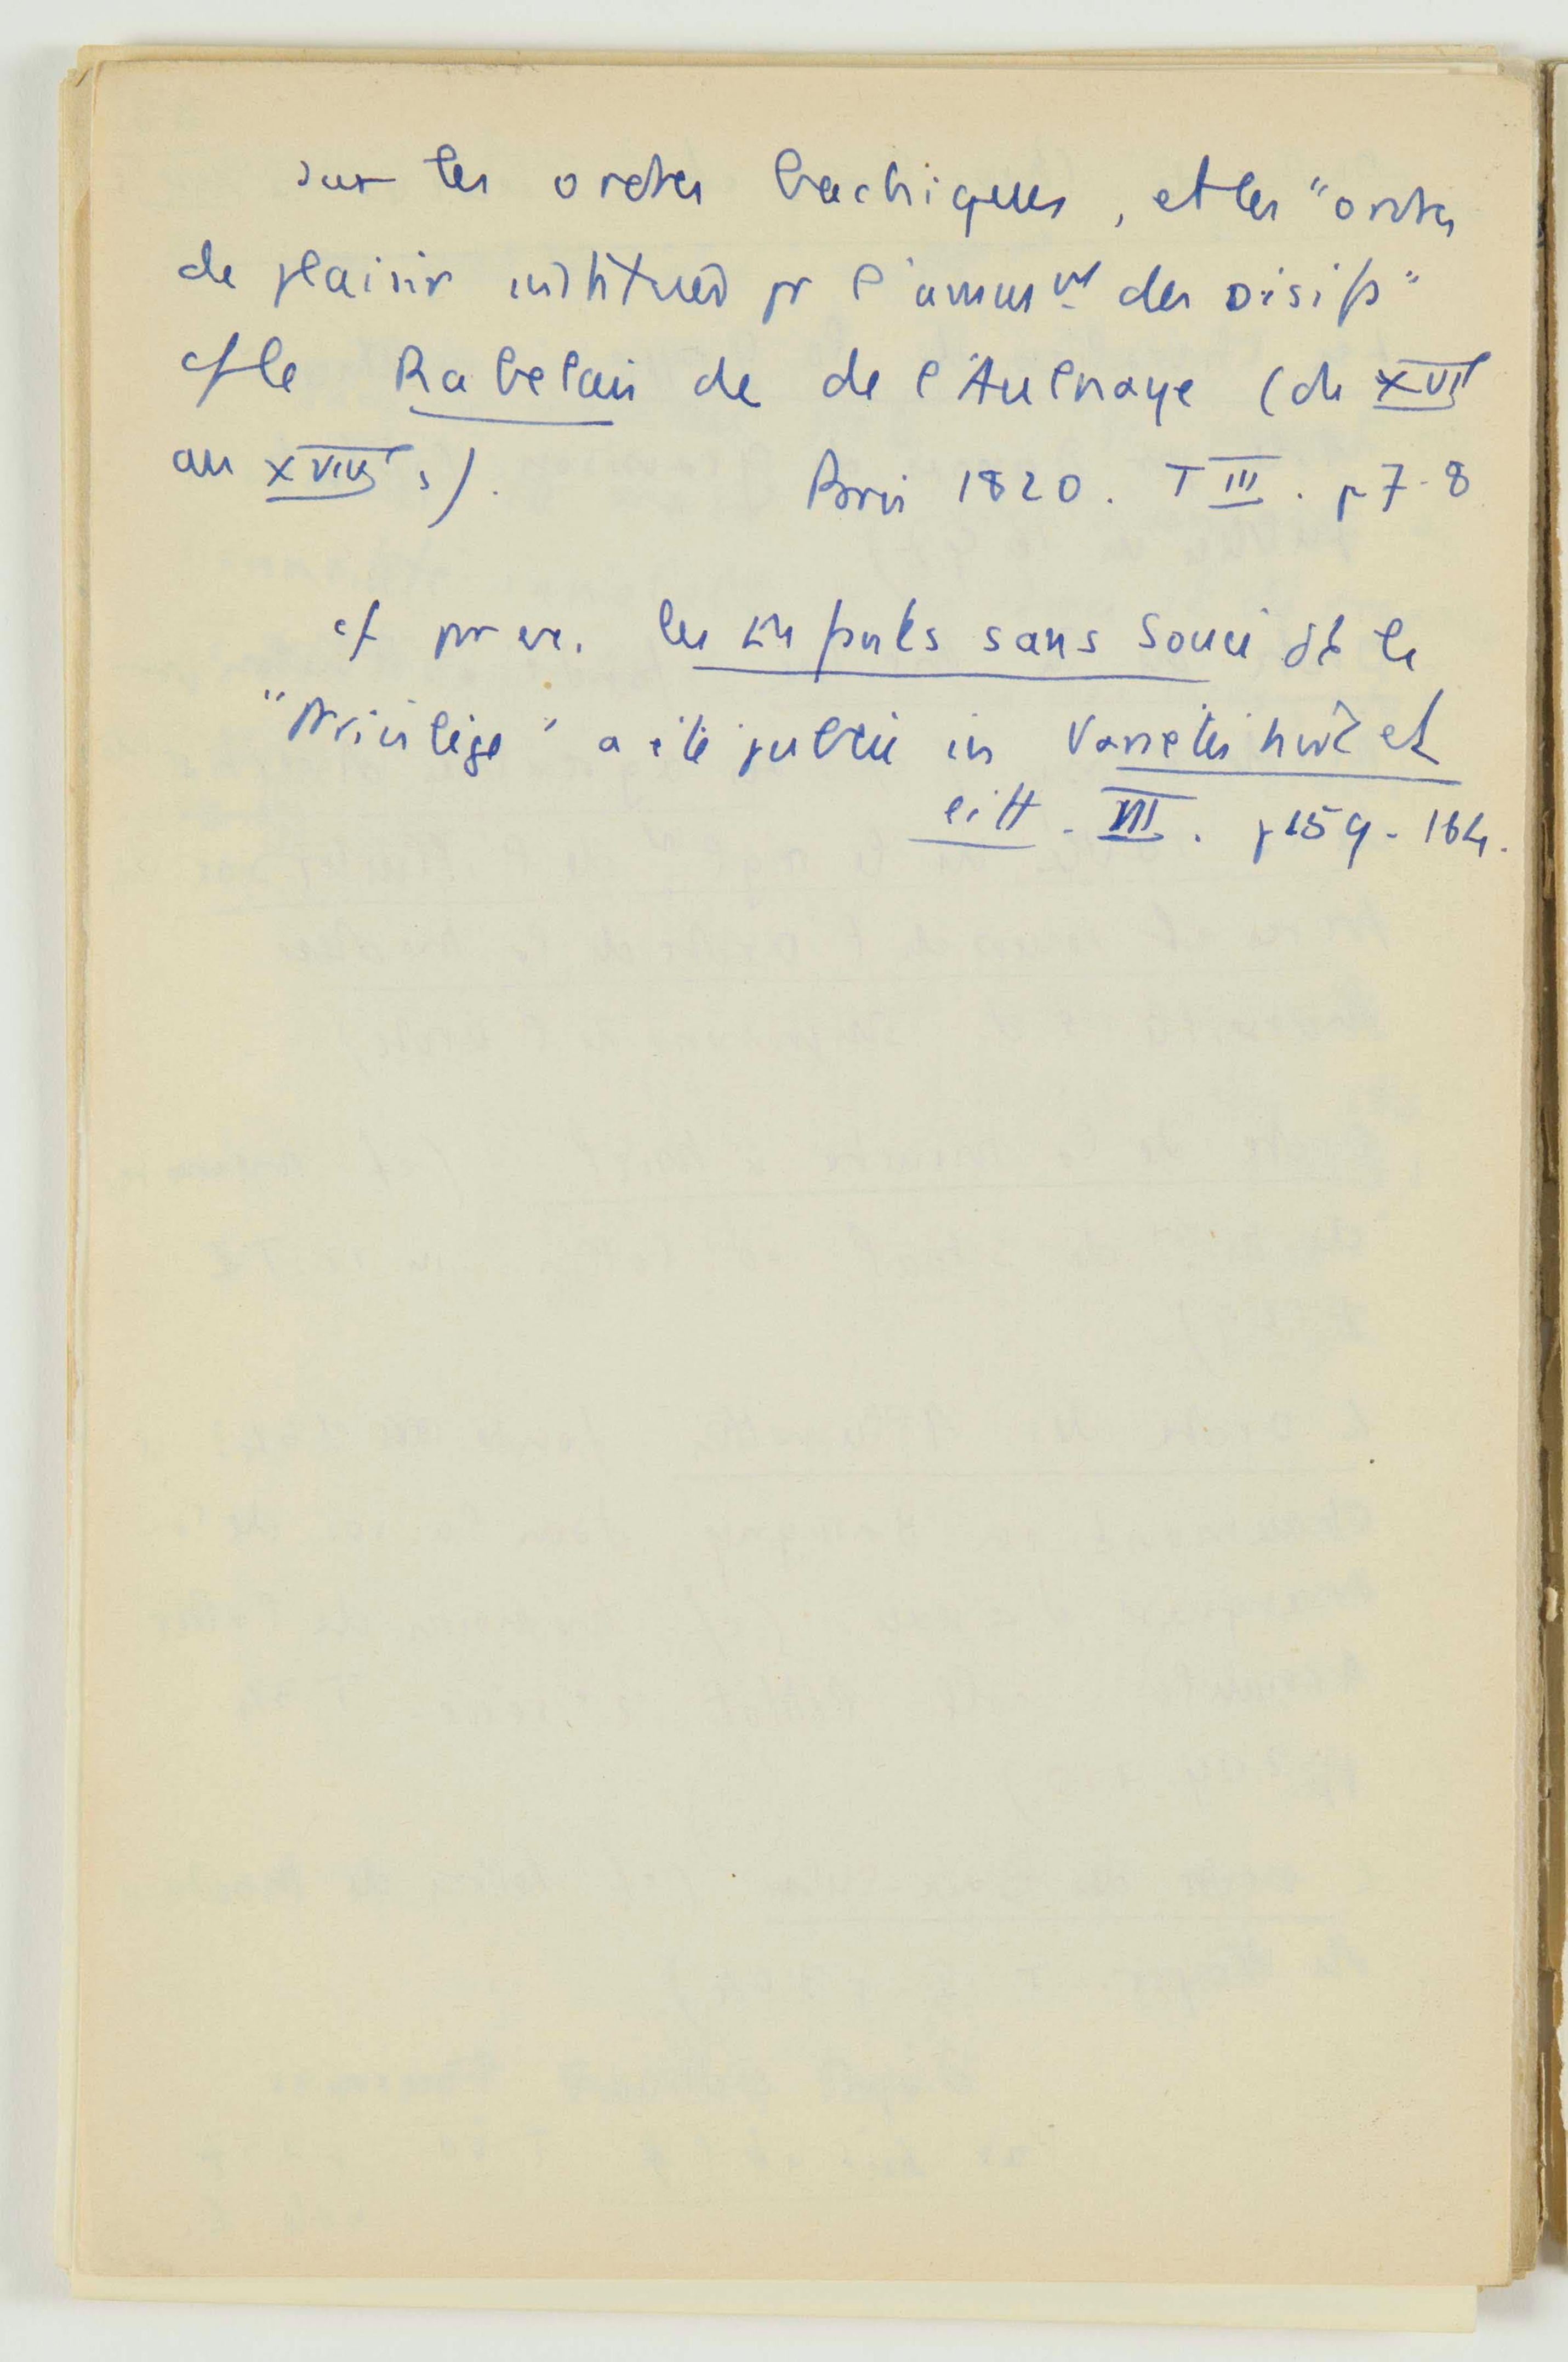 sur les ordres bachiques, et les "ordres
de plaisir institués pr l'amusmt des oisifs"
cf le Rabelais de de l'Aulnaye (du XVIe
au XVIIIe s).          Paris 1820. T III. p 7-8
cf pr ex. les Enfants sans Souci dt le
"Privilège" a été publié in Variétés hist et
litt. III. p 159-164.